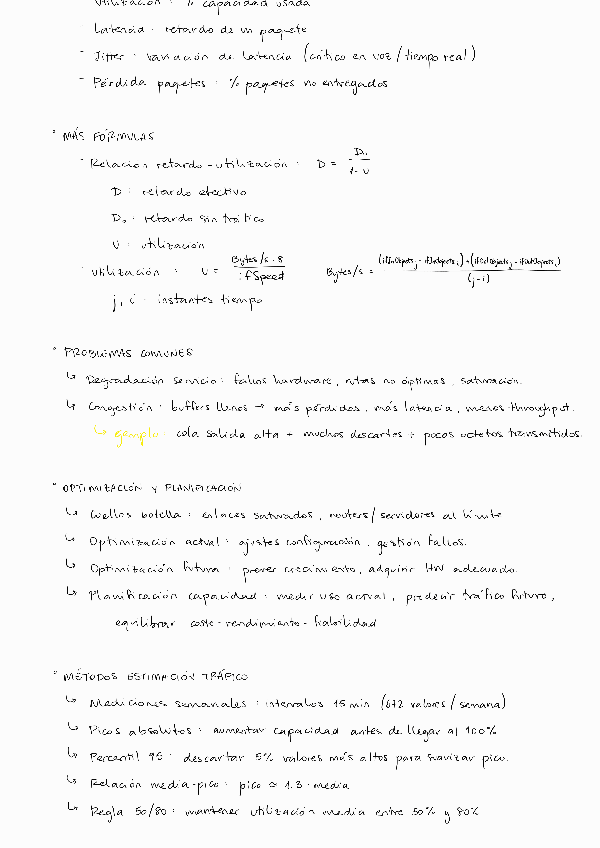 Utilización : % capacidad usada
- Latencia : retardo de un paquete
- Jitter : variación de latencia (crítico en voz/tiempo real)
- Pérdida paquetes : % paquetes no entregados
° MÁS FÓRMULAS
- Relación retardo-utilización : D = D₀ / 1-U
D : retardo efectivo
D₀ : retardo sin tráfico
U : utilización
- Utilización : U = Bytes/s · 8 / ifSpeed    Bytes/s = (ifInOctets j - ifInOctets i) + (ifOutOctets j - ifOutOctets i) / (j-i)
j, i : instantes tiempo
° PROBLEMAS COMUNES
↳ Degradación servicio : fallos hardware, rutas no óptimas, saturación.
↳ Congestión : buffers llenos → más pérdidas, más latencia, menos throughput.
↳ ejemplo : cola salida alta + muchos descartes + pocos octetos transmitidos.
° OPTIMIZACIÓN Y PLANIFICACIÓN
↳ Cuellos botella : enlaces saturados, routers/servidores al límite
↳ Optimización actual : ajustes configuración, gestión fallos.
↳ Optimización futura : prever crecimiento, adquirir HW adecuado.
↳ Planificación capacidad : medir uso actual, predecir tráfico futuro,
equilibrar coste-rendimiento-fiabilidad
° MÉTODOS ESTIMACIÓN TRÁFICO
↳ Mediciones semanales : intervalos 15 min (672 valores/semana)
↳ Picos absolutos : aumentar capacidad antes de llegar al 100%
↳ Percentil 95 : descartar 5% valores más altos para suavizar pico.
↳ Relación media-pico : pico ≈ 1.3 · media
↳ Regla 50/80 : mantener utilización media entre 50% y 80%